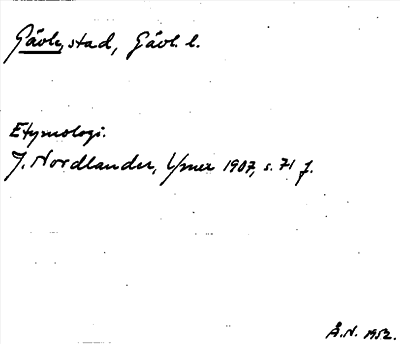 Gävle stad, Gävl. l.
Etymologi.
J. Nordlander, Ymer 1907, s. 71 f.
Å.N. 1952.